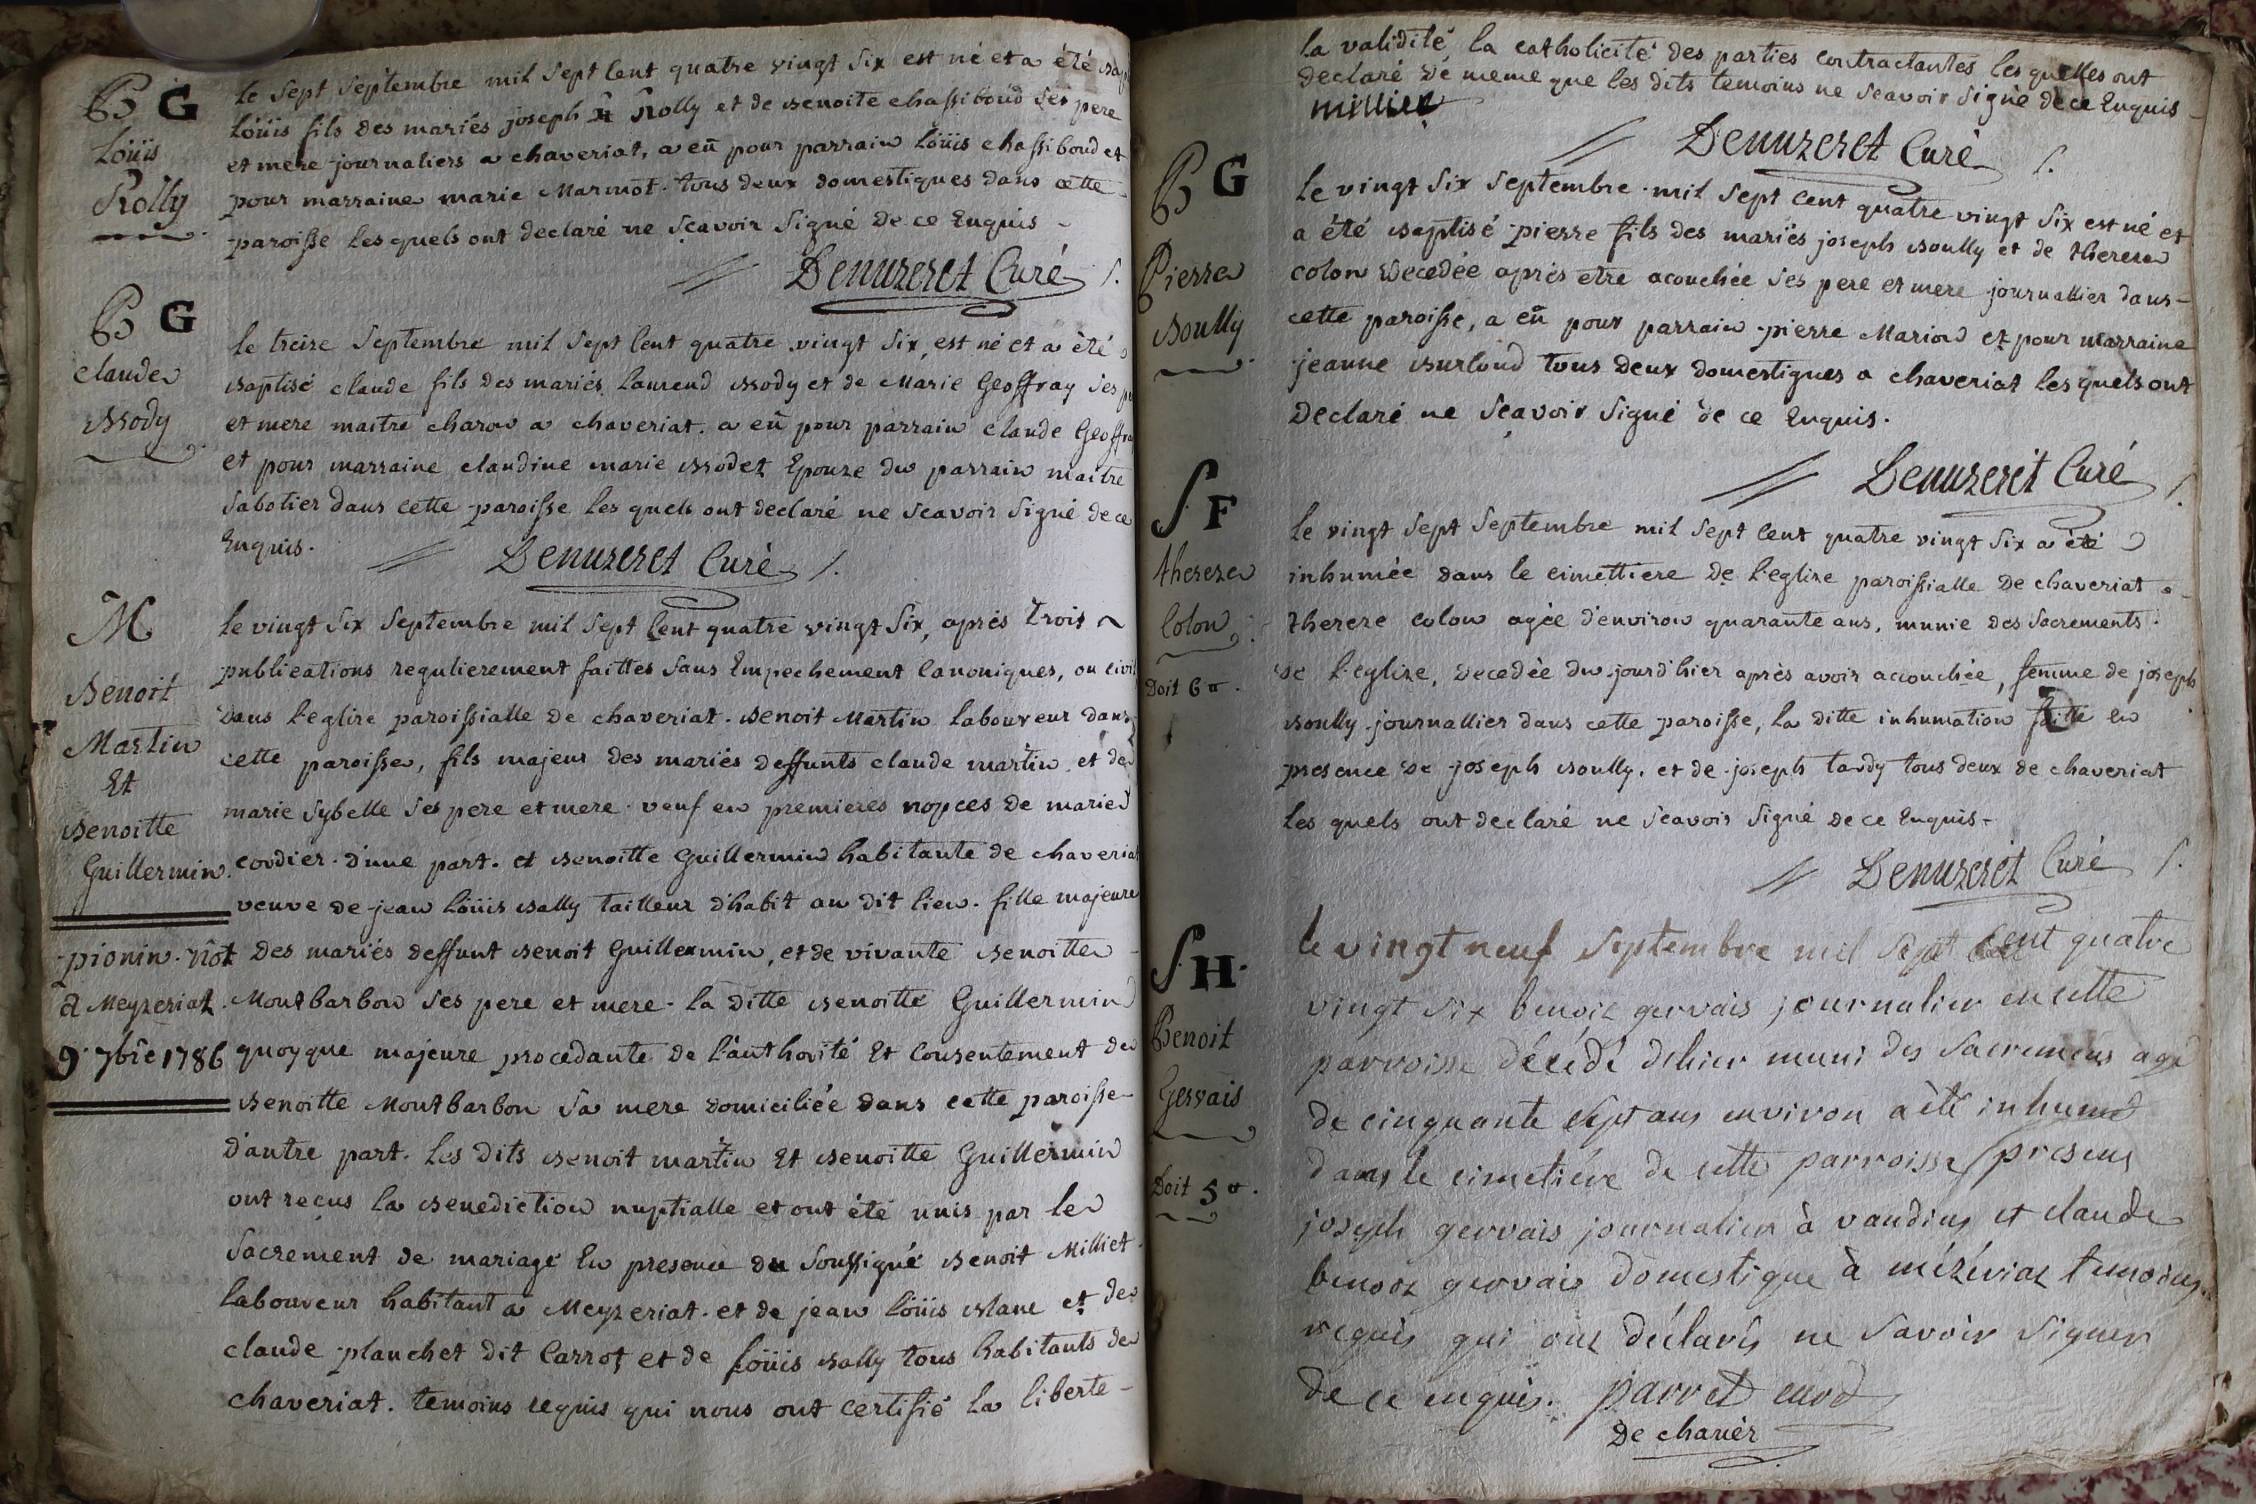 B G
Loüis
Rolly
le sept septembre mil sept cent quatre vingt six est né et a été bap
Loüis fils des mariés joseph Rolly et de benoite chassiboud ses pere
et mere journaliers a chaveriat, a eû pour parrain Loüis chassiboud et
pour marraine marie Marmot. tous deux domestiques dans cette
paroisse les quels ont declaré ne scavoir signé de ce Enquis -
Denuzeret Curé
B G
claude
Brody
le treize septembre mil sept cent quatre vingt six, est né et a été
baptisé claude fils des mariés Laurend Brody et de Marie Geoffray ses
et mere maitre charon a chaveriat. a eû pour parrain claude Geoffra
et pour marraine claudine marie Brodet Epouze du parrain maitre
sabotier dans cette paroisse les quels ont declaré ne scavoir signé de ce
Enquis.
Denuzeret Curé
M
Benoit
Martin
Et
Benoitte
Guillermin.
pionin. nôt
a Meyzeriat.
9. 7bre 1786
le vingt six septembre mil sept cent quatre vingt six, aprés trois
publications regulierement faittes sans Empechement canoniques, ou civil
dans l'eglize paroissialle de chaveriat. benoit Martin laboureur dans
cette paroisse, fils majeur des mariés deffunts claude martin et de
marie sybelle ses pere et mere. veuf en premieres nopces de marie
cordier. d'une part. et benoitte Guillermin habitante de chaveriat
veuve de jean Loüis bally tailleur d'habit au dit lieu. fille majeure
des mariés deffunt benoit Guillermin, et de vivante benoitte
Montbarbon ses pere et mere. la ditte benoitte Guillermin
quoyque majeure procedante de l'authorité Et consentement de
benoitte Montbarbon sa mere domiciliée dans cette paroisse
d'autre part. les dits benoit martin Et benoitte Guillermin
ont reçus la benediction nuptialle et ont été unis par le
sacrement de mariage En presence du soussigné benoit Milliet
laboureur habitant a Meyzeriat. et de jean Loüis blanc et de
claude planchet dit Carrot et de Loüis bally tous habitants de
chaveriat. temoins requis qui nous ont certifié la liberte -
la validité la catholicité des parties contractantes les quelles ont
declaré de meme que les dits temoins ne scavoir signé de ce Enquis
milliet
Denuzeret Curé
B G
Pierre
Boully
le vingt six septembre mil sept cent quatre vingt six est né et
a été baptisé pierre fils des mariés joseph boully et de therese
colon decedée aprés etre acouchée ses pere et mere journallier dans
cette paroisse, a eû pour parrain pierre Mariod et pour marraine
jeanne burloud tous deux domestiques a chaveriat les quels ont
declaré ne scavoir signé de ce Enquis.
Denuzeret Curé
S F
thereze
Colon
Doit 6
le vingt sept septembre mil sept cent quatre vingt six a été
inhumée dans le cimettiere de l'eglize paroissialle de chaveriat
thereze colon agée d'environ quarante ans, munie des sacrements
de l'eglize, decedée du jourd'hier aprés avoir accouchée, femme de joseph
boully journallier dans cette paroisse, la ditte inhumation faitte en
presence de joseph boully. et de joseph tardy tous deux de chaveriat
les quels ont declaré ne scavoir signé de ce Enquis -
Denuzeret Curé
S H
Benoit
Gervais
Doit 5
le vingt neuf septembre mil sept cent quatre
vingt six benoit gervais journalier en cette
parroisse décédé dhier muni des sacremens agé
de cinquante sept ans environ a été inhumé
dans le cimetiére de cette parroisse presens
joseph gervais journalier à vandins et claude
benoit gervais domestique à mézériat temoins
requis qui ont déclarés ne savoir signer
de ce enquis. parret
De chanér